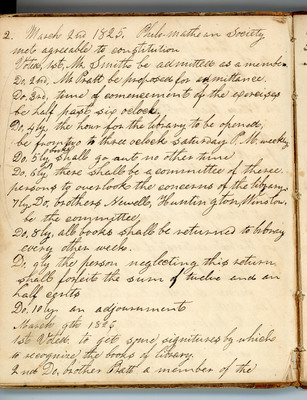 2. March 2nd 1825. Philomathean Society
met agreeable to constitution
Voted, 1st, Mr Smith be admitted as a member
Do, 2nd, Mr Pratt be proposed for admittance.
Do, 3rd, time of commencement of the exercises
be half past six oclock
Do, 4ly the hour for the library to be opened,
be from two to three oclock saturday P.M. weekly
Do, 5ly books shall go out no other time
Do, 6ly there shall be a committee of three
persons to overlook the concerns of the library
7ly Do, brothers Newell, Huntington, Winslow,
be the committee,
Do, 8ly, all books shall be returned to library
every other week.
Do, 9ly the person neglecting this return
shall forfeit the sum of twelve and an
half cents
Do, 10ly an adjournment
March 9th 1825
1st Voted, to get some signitures by which
to recognize the books of library
2nd Do, brother Pratt a member of the